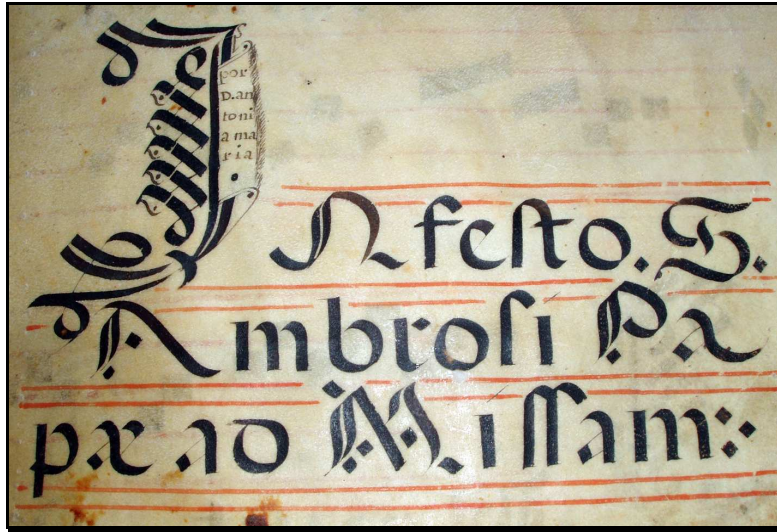 por
D.an
toni
a ma
ria
IN feſto. S.
Ambroſi Pa
pæ ad Miſſam